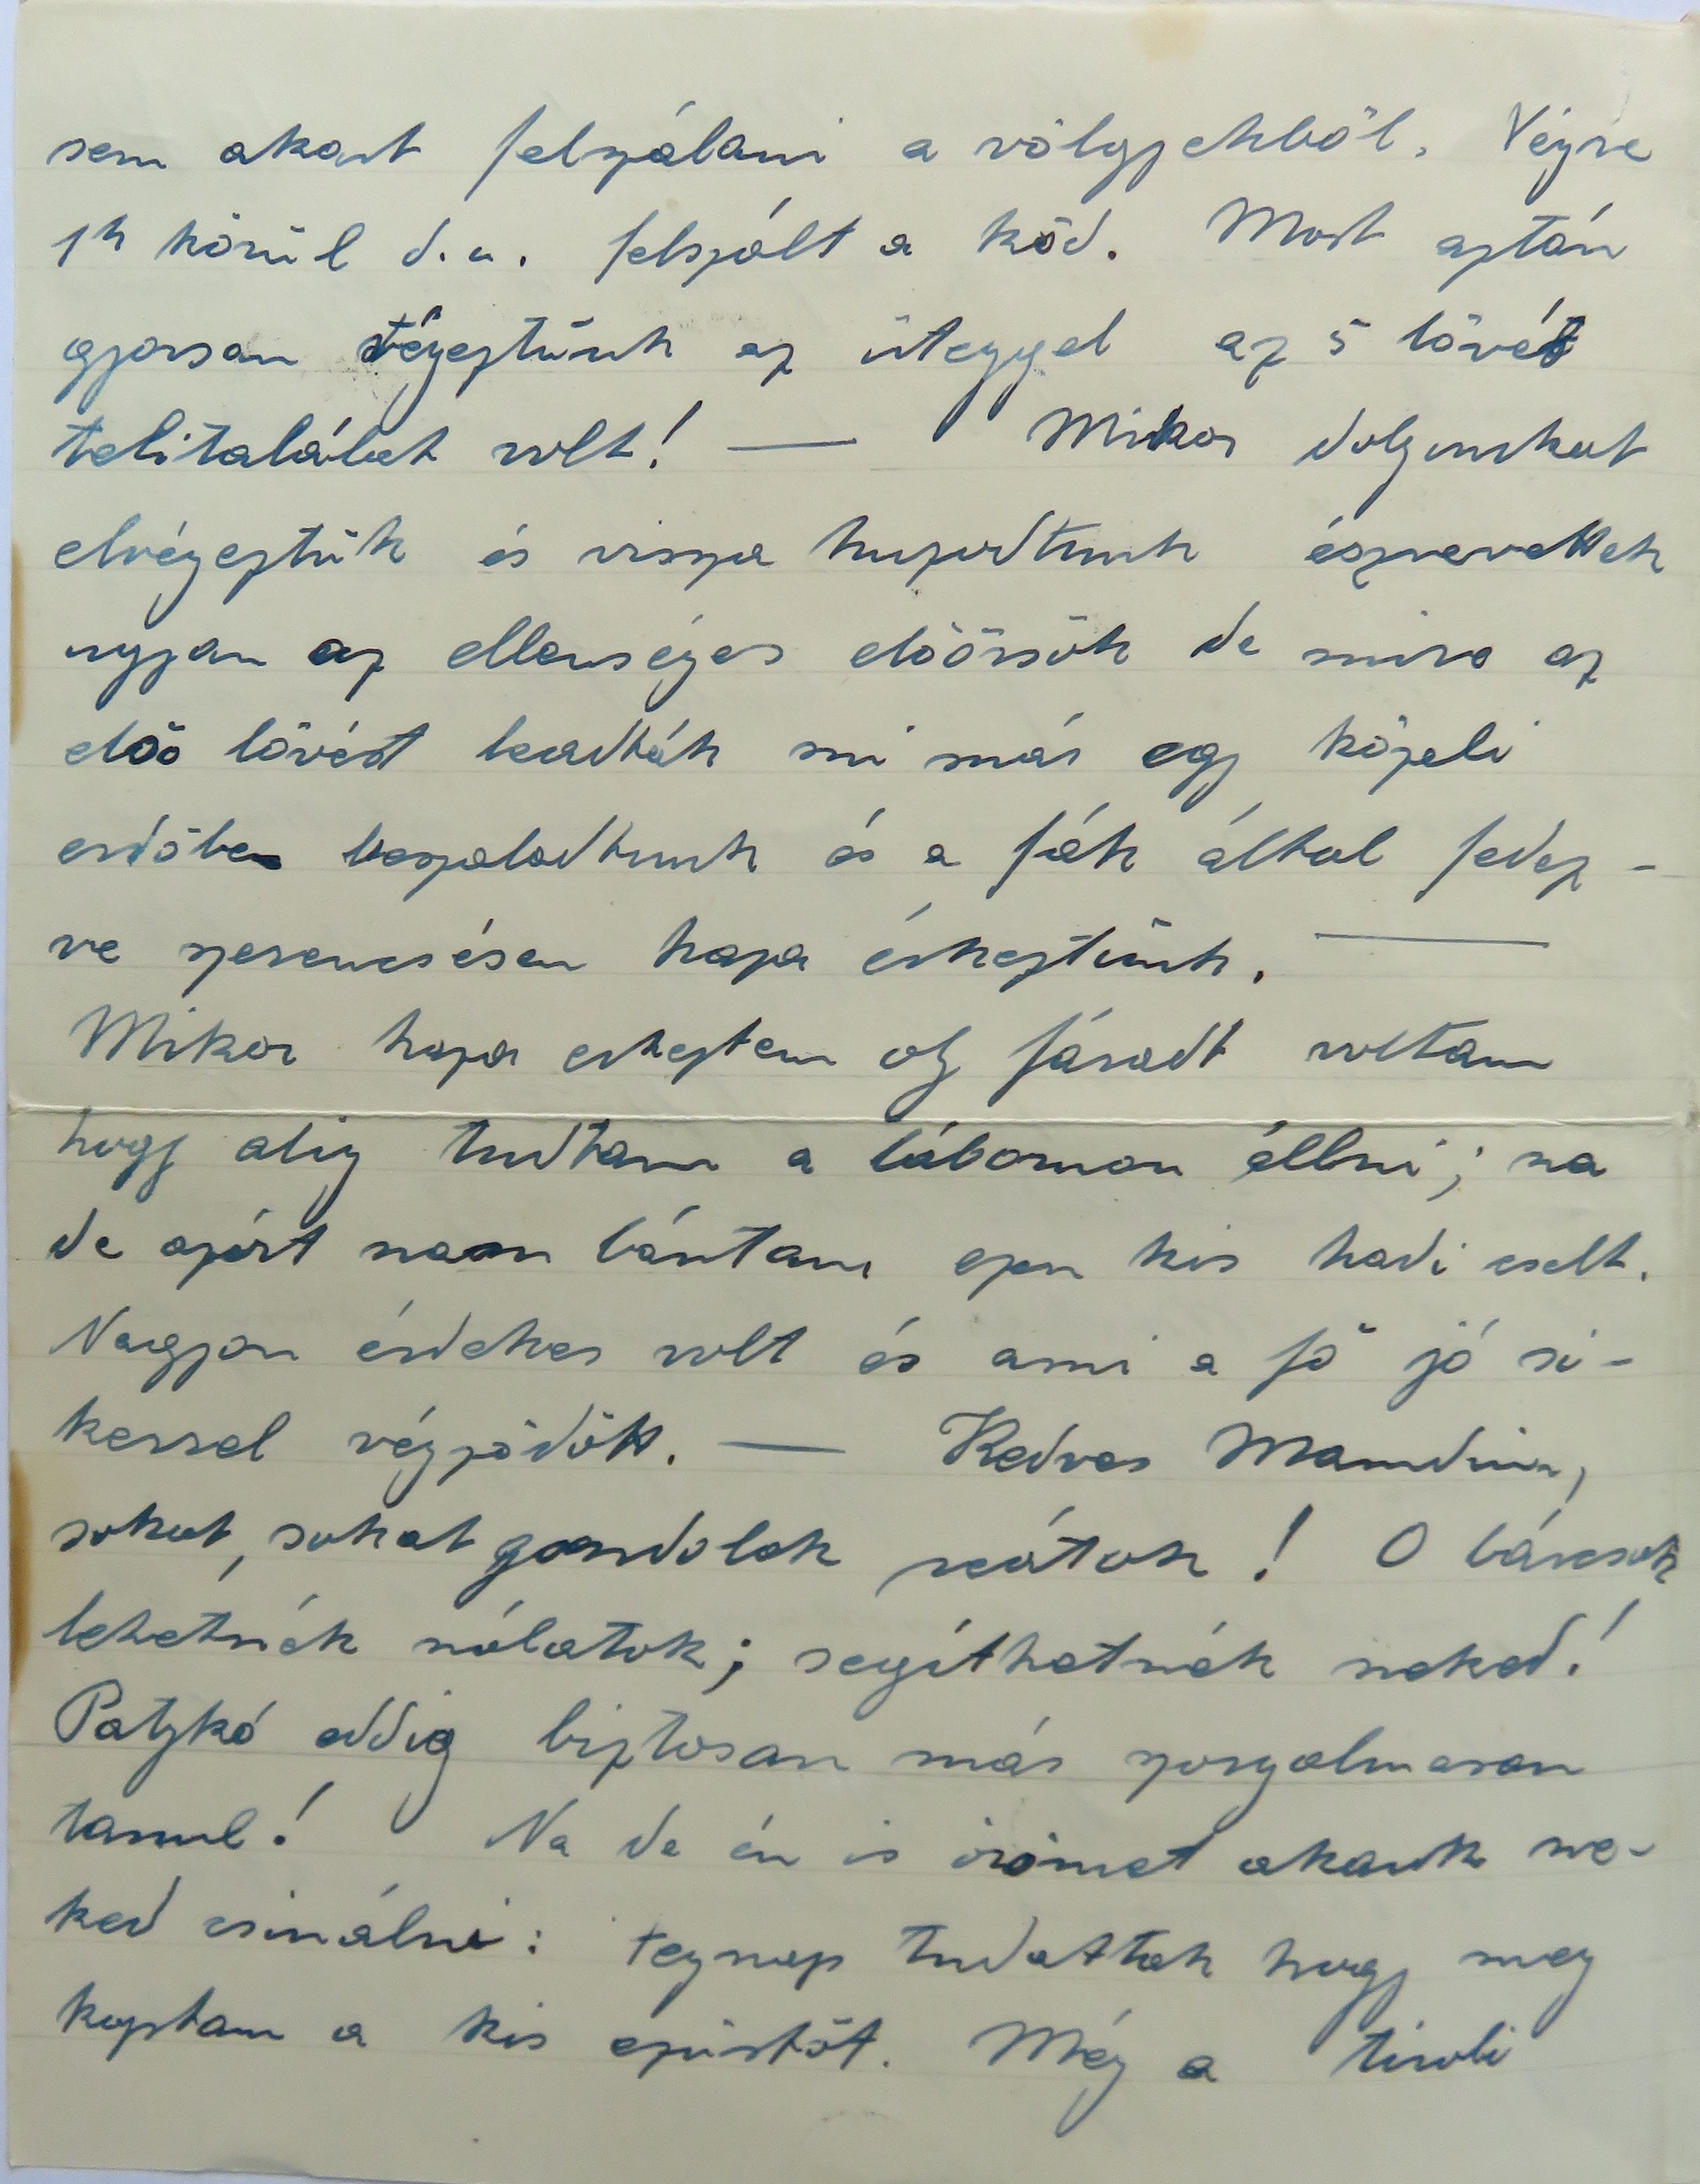 sem akart felszálani a völgyekből. Végre
1h körül d.u. felszált a köd. Most aztán
gyorsan végeztünk az üteggel az 5 lövés
telitalálat volt! — Mikor dolgunkat
elvégeztük és vissza huzodtunk észrevettek
ugyan az ellenséges előörsök de mire az
első lövést leadták mi már egy közeli
erdőbe beszaladtunk és a fák által fedez-
ve szerencsésen haza érkeztünk. —
Mikor haza erkeztem oly fáradt voltam
hogy alig tudtam a lábomon állni; na
de azért nem bántam ezen kis hadi cselt.
Nagyon érdekes volt és ami a fő jó si-
kerrel végződött. — Kedves Mamdim,
sokat, sokat gondolok reátok! O bárcsak
lehetnék nálatok; segíthetnék neked!
Patzkó eddig biztosan már szorgalmasan
tanul! Na de én is örömet akarok ne-
ked csinálni: tegnap tudattak hogy meg
kaptam a kis ezüstöt. Még a tiroli